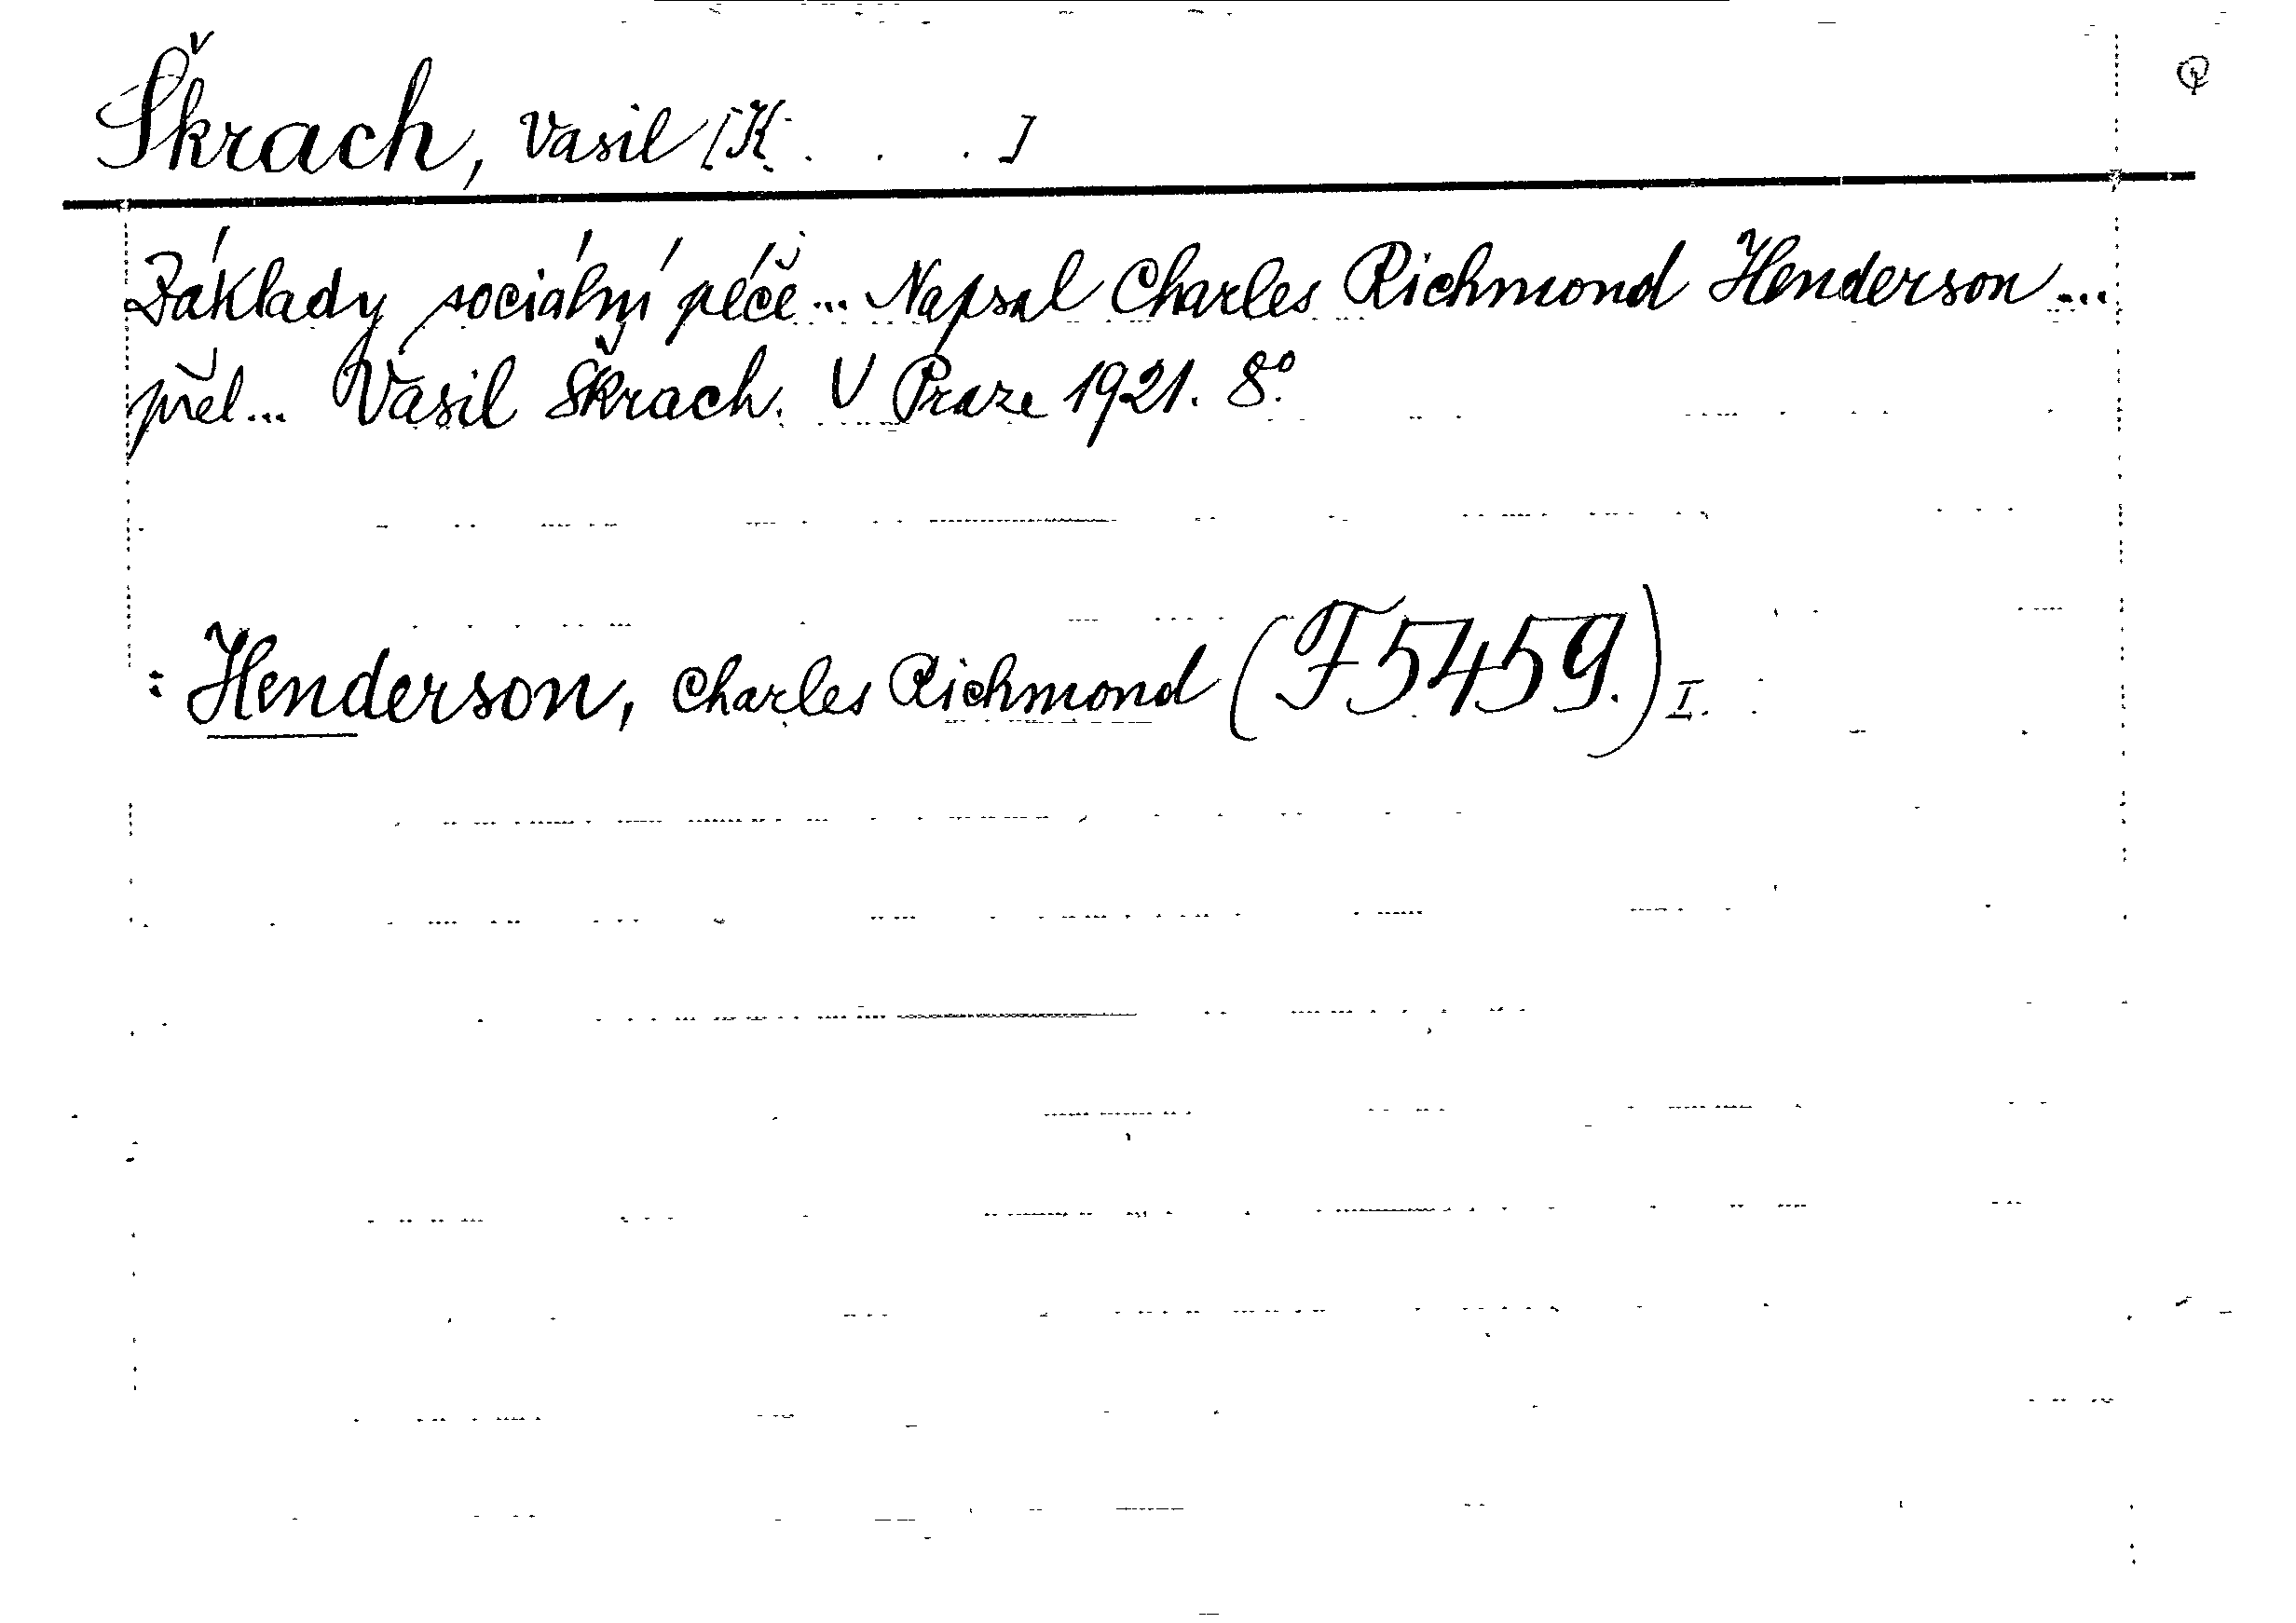 Škrach, Vasil [K. . . .]
Základy sociální péče... Napsal Charles Richmond Henderson...
přel... Vasil Škrach. V Praze 1921. 8°.
: Henderson, Charles Richmond (F 5459.) I.